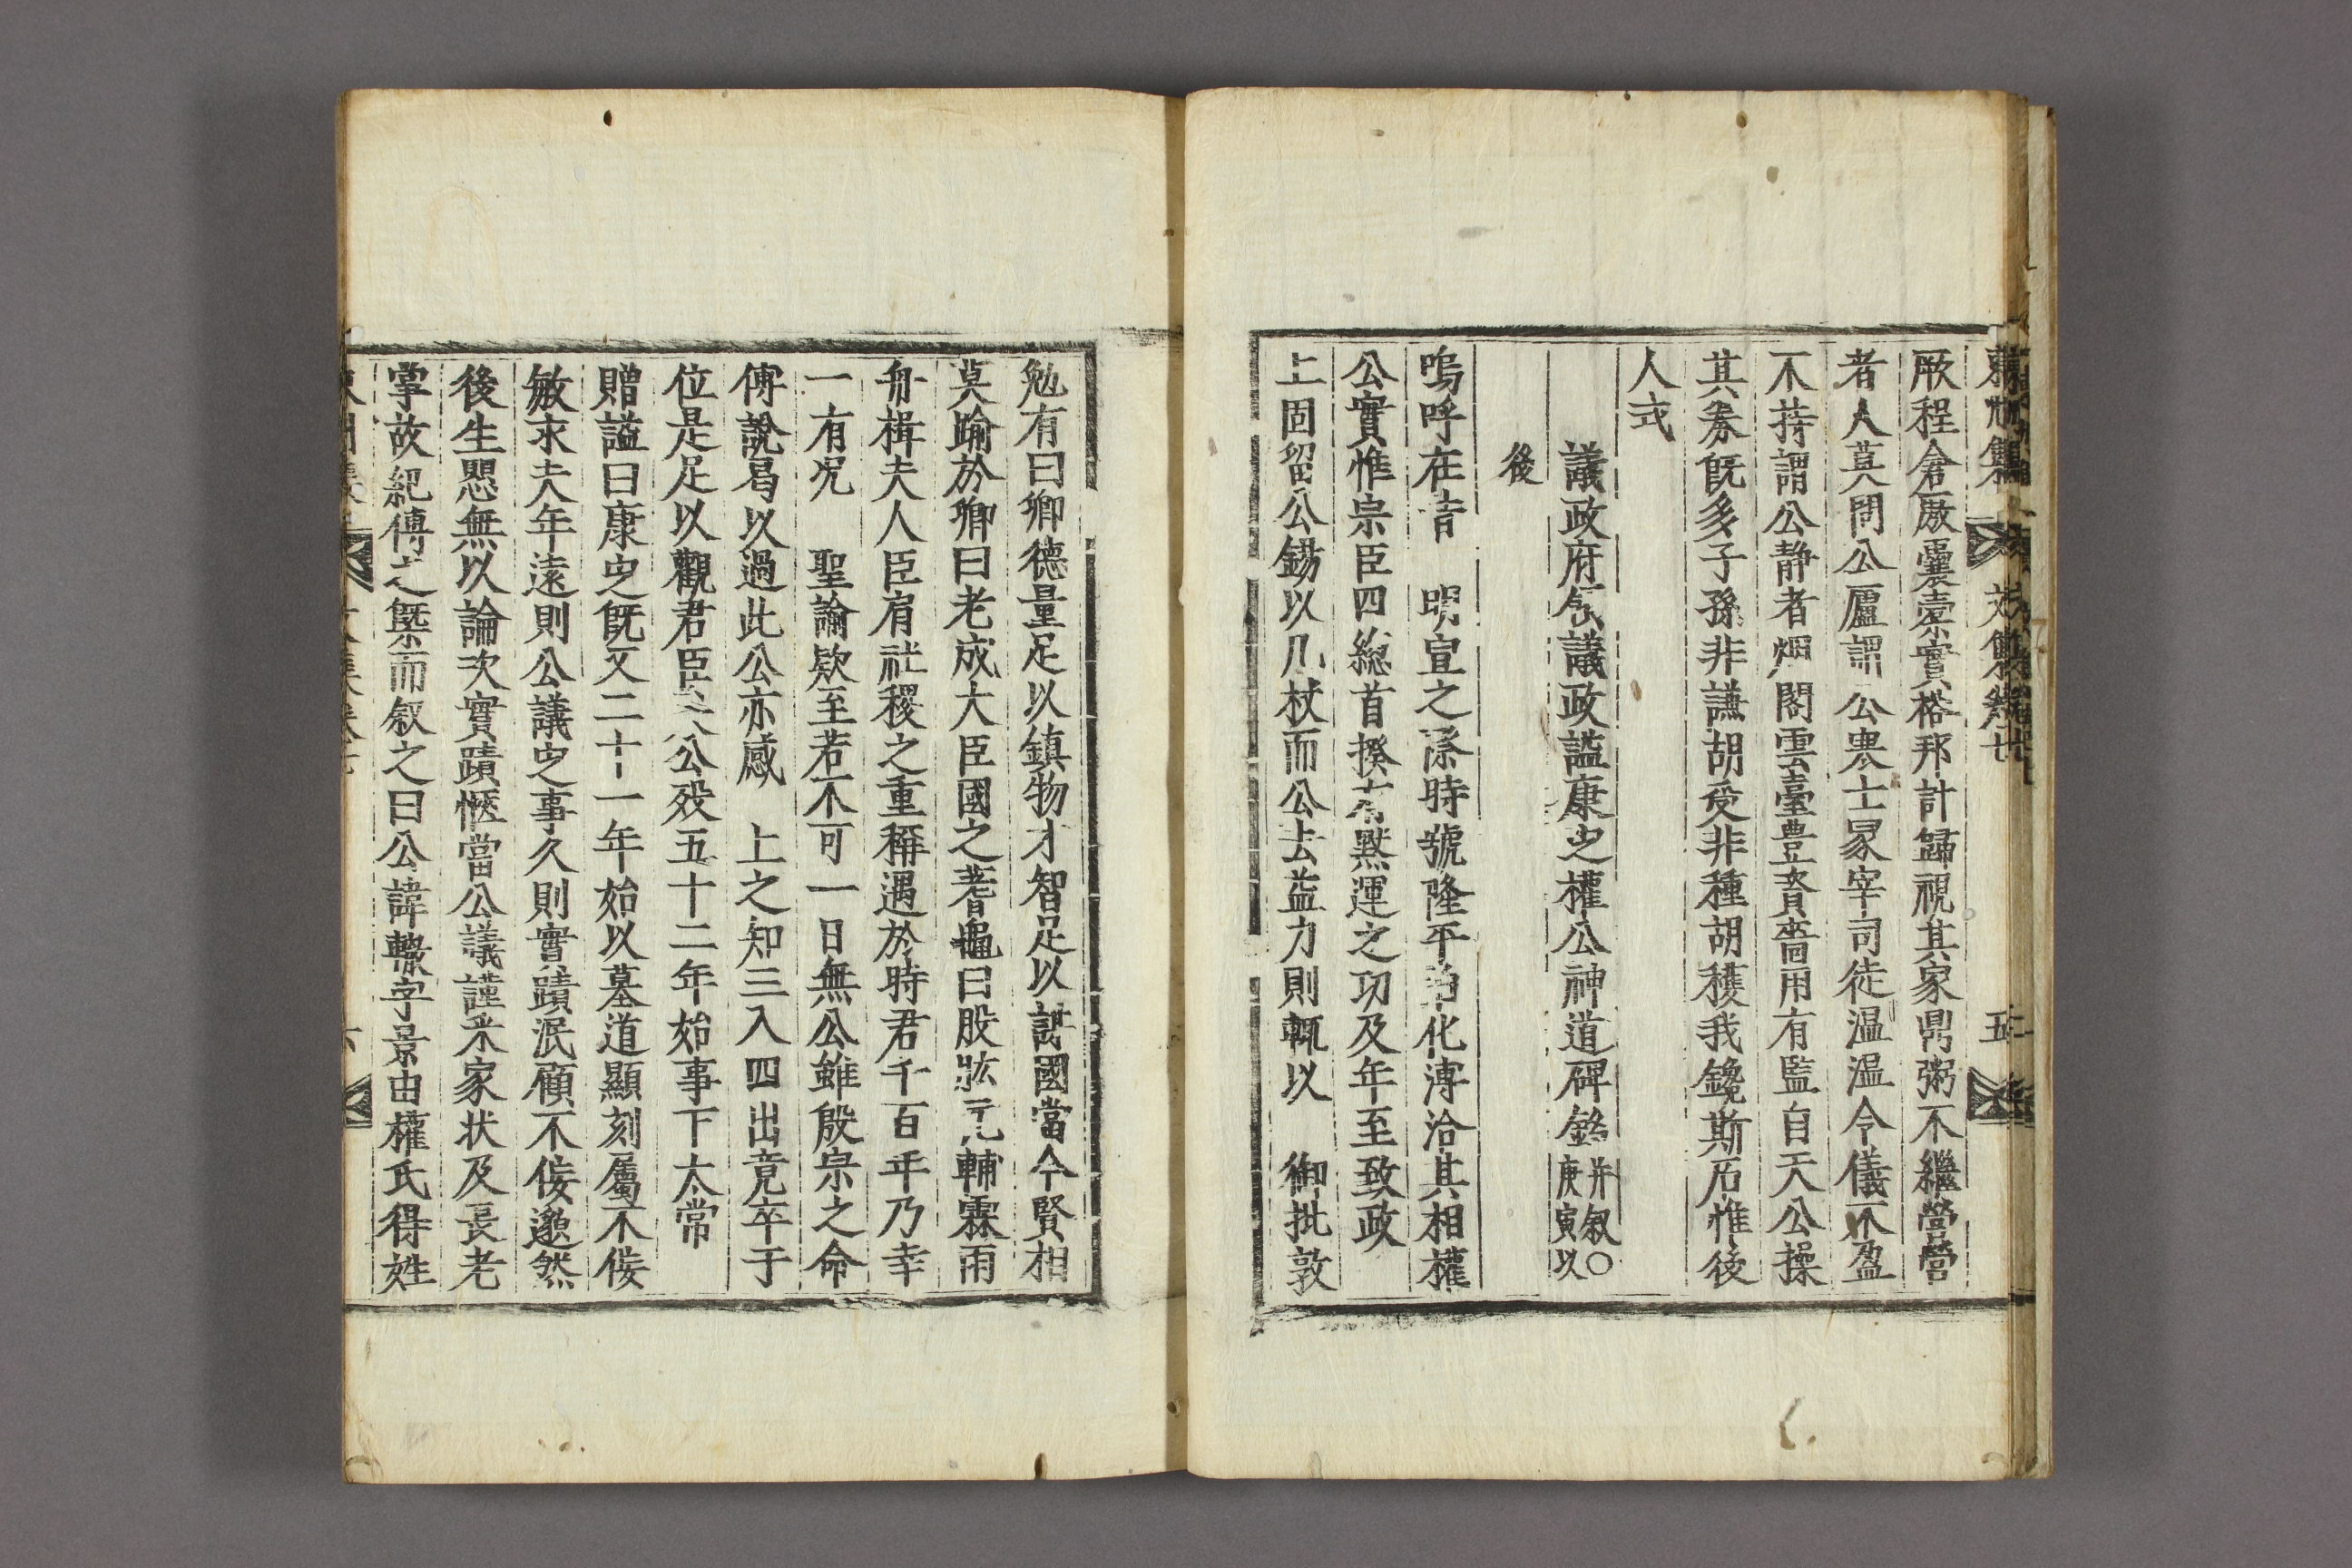 東州集 文集卷七 五
厥程倉厫囊橐實褡邦計歸視其家鼎粥不繼營營
者人莫問公廬謂公寒士冢宰司徒温温令儀不盈
不持謂公静者烟閣雲臺豊資嗇用有監自天公操
其券旣多子孫非讌胡受非種胡穫我鑱斯石惟後
人式
議政府左議政謚康定權公神道碑銘并叙○庚寅以
後
嗚呼在昔 明宣之際時號隆平當化溥洽其相權
公實惟宗臣四總首揆有默運之功及年至致政
上固留公錫以几杖而公去益力則輒以 御批敦
勉有曰卿德量足以鎮物才智足以謀國當今賢相
莫踰於卿曰老成大臣國之蓍龜曰股肱元輔霖雨
舟楫夫人臣肩社稷之重稱遇於時君千百年乃幸
一有况 聖諭欵至若不可一日無公雖殷宗之命
傅說曷以過此公亦感 上之知三入四出竟卒于
位是足以觀君臣矣公殁五十二年始事下太常
贈謚曰康定旣又二十一年始以墓道顯刻屬不佞
敏求夫年遠則公議定事久則實蹟泯顧不佞邈然
後生愳無以論次實蹟愜當公議謹采家状及長老
掌故紀傅之槩而叙之曰公諱轍字景由權氏得姓